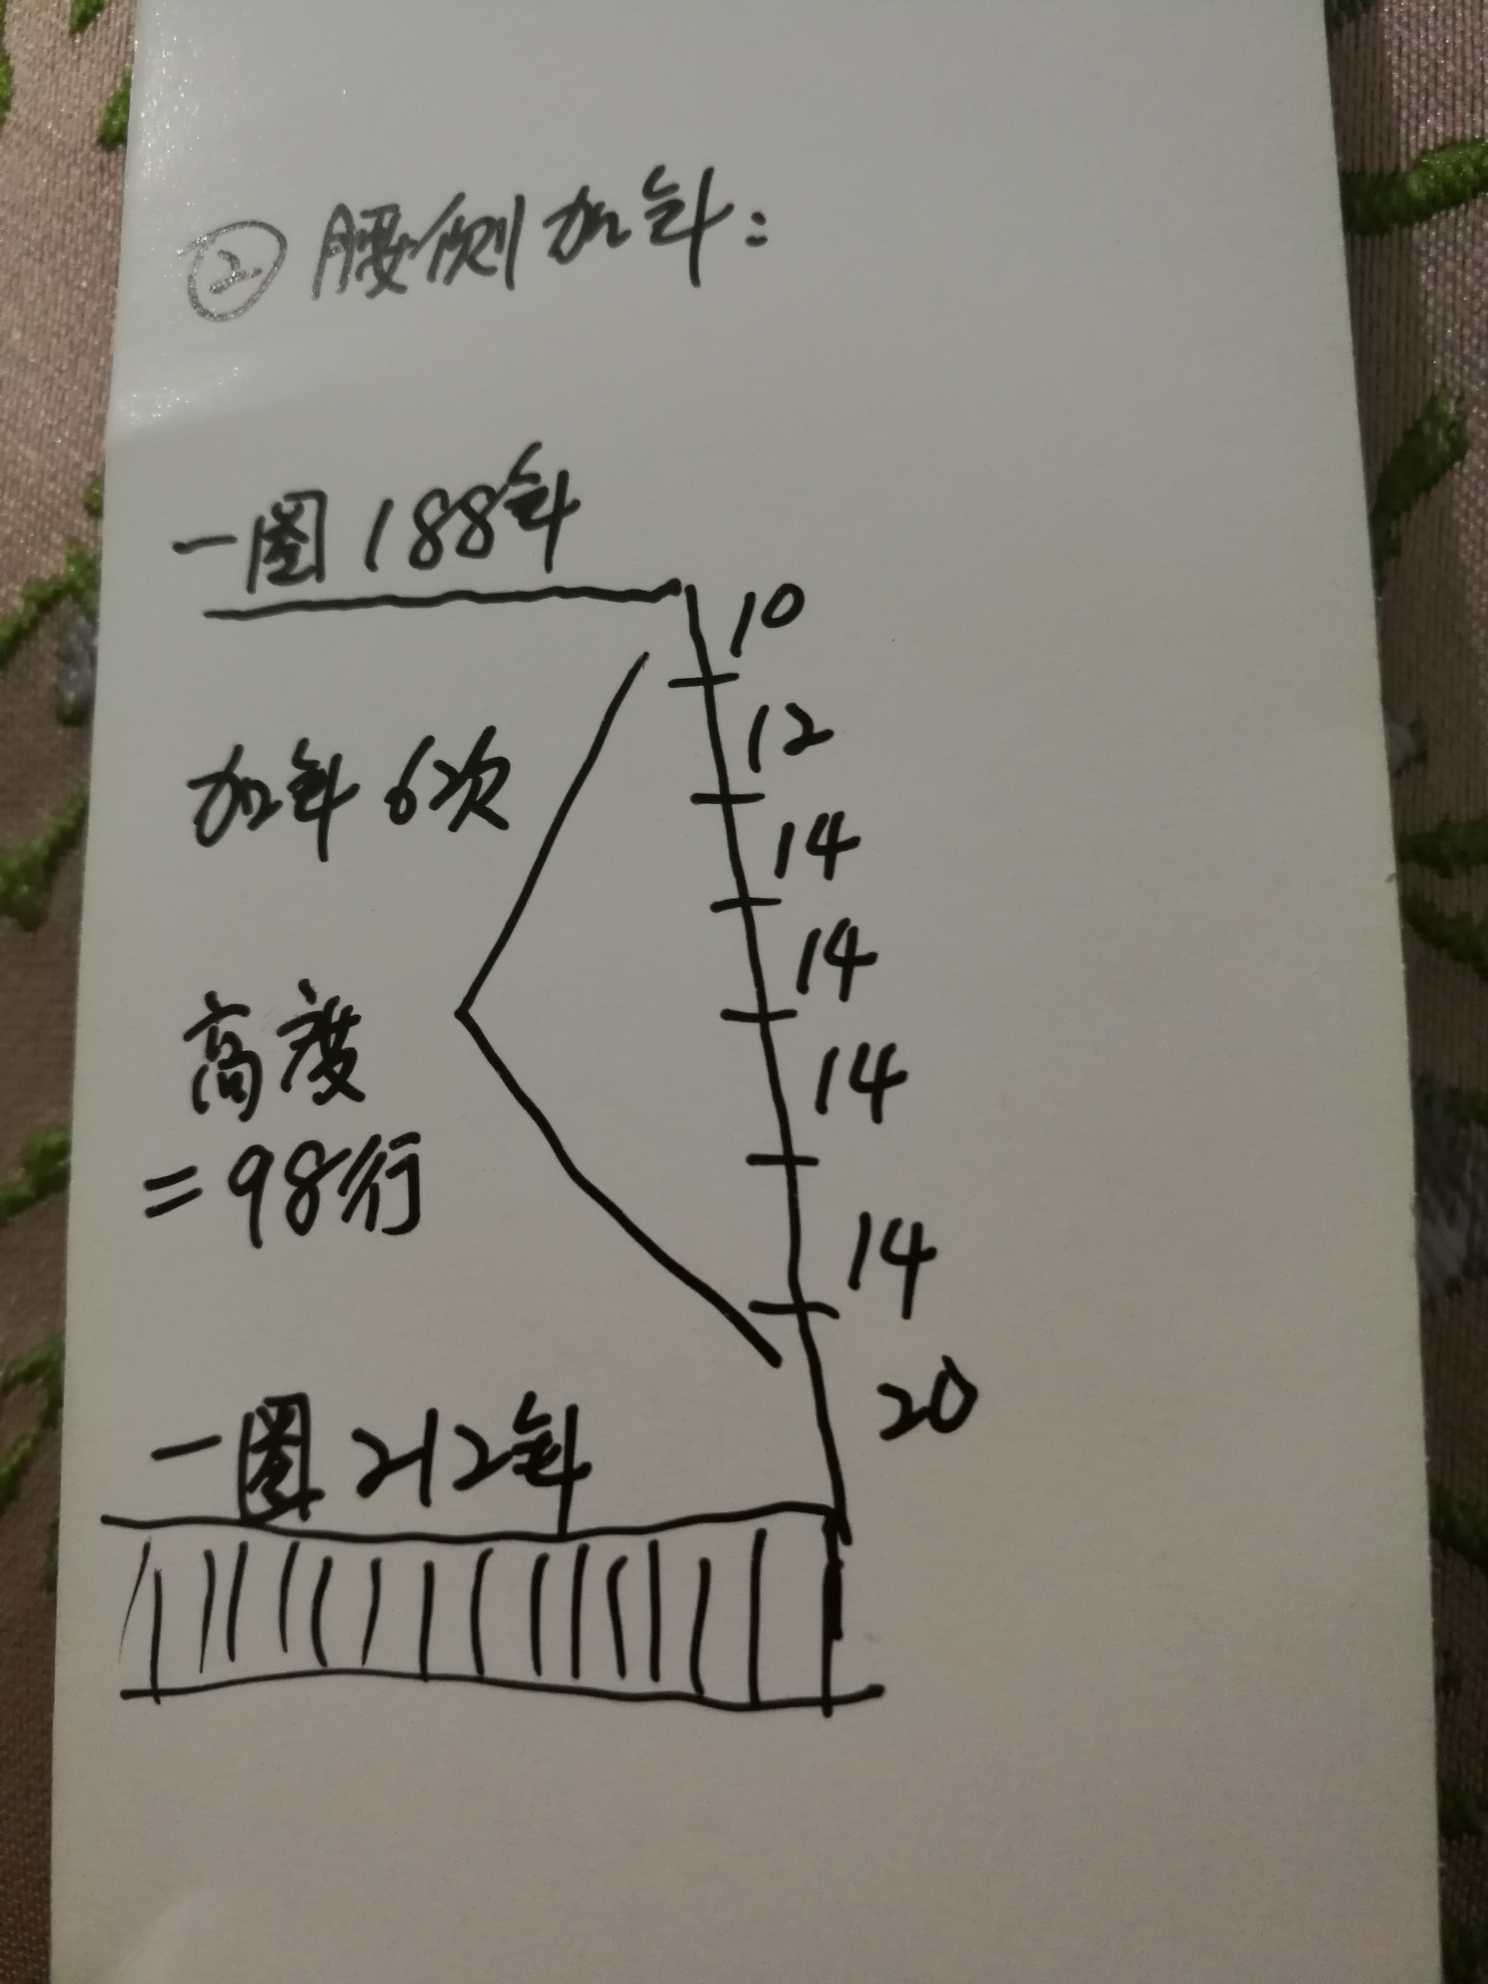 ② 腰侧加针:
一圈188针
10
12
加针6次
14
14
高度
14
=98行
14
20
一圈212针